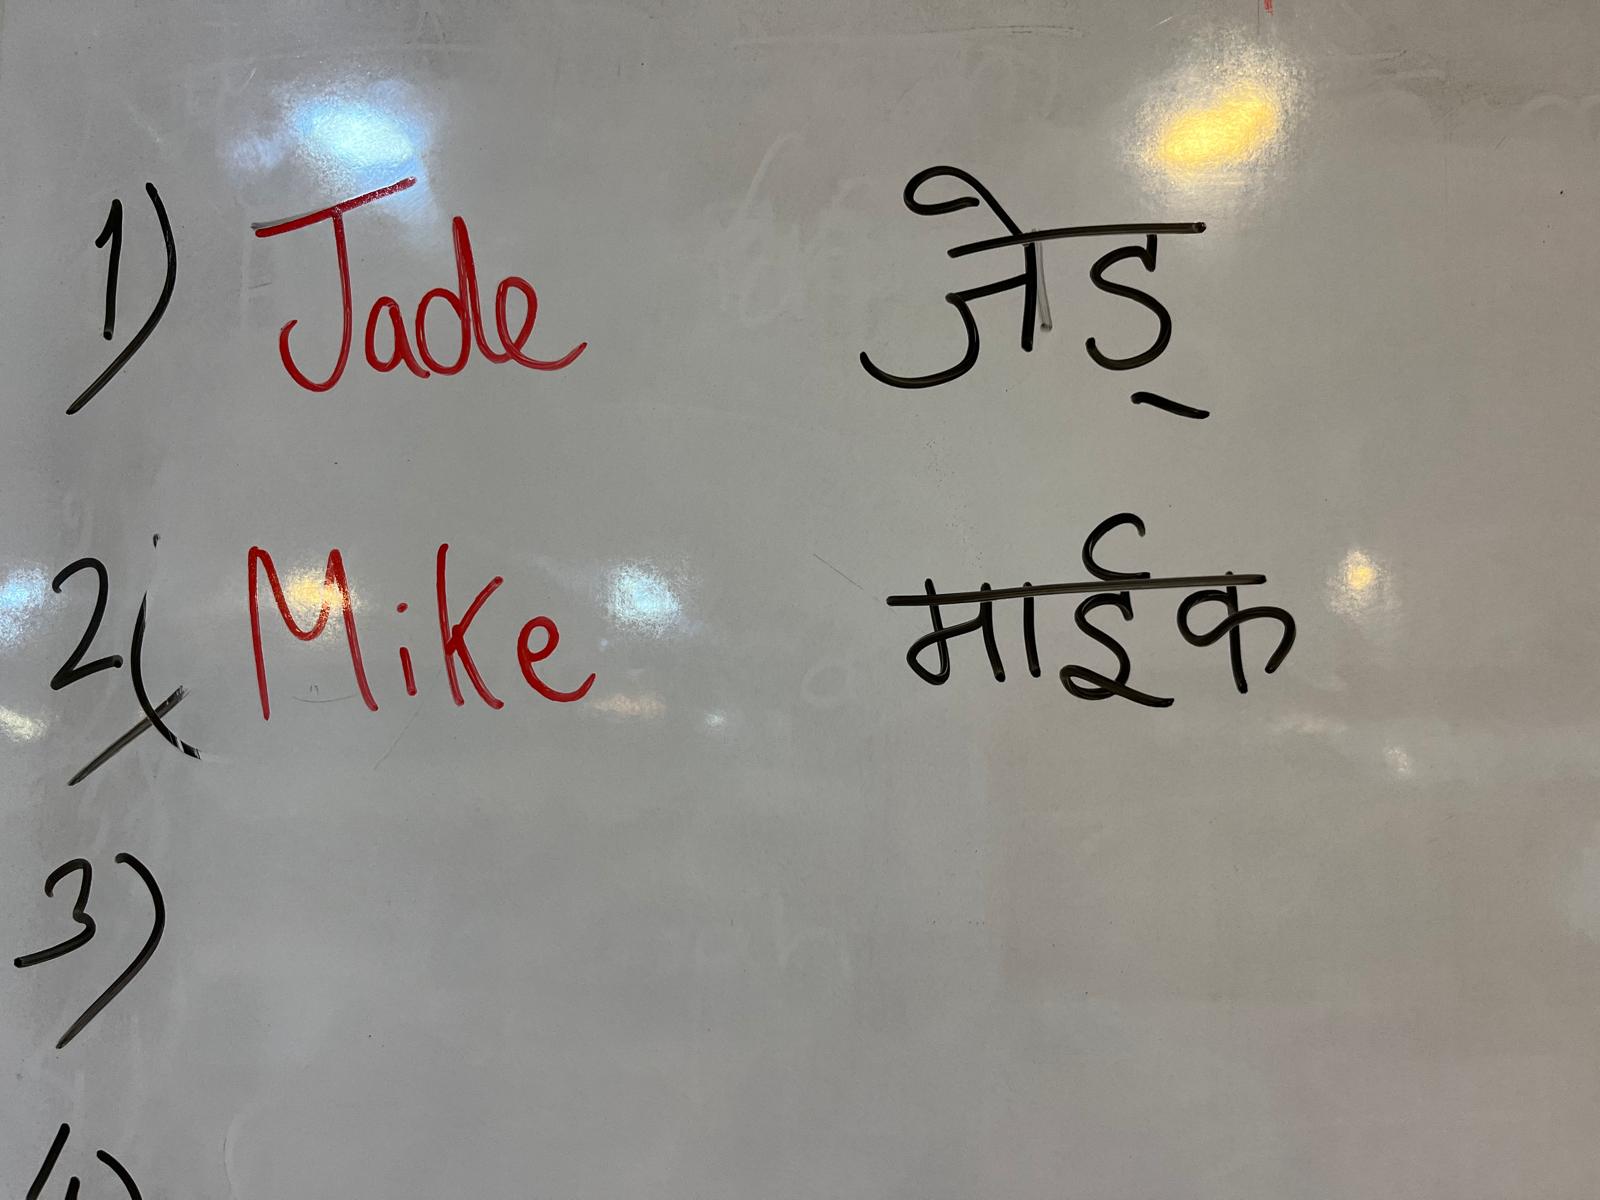 1) Jade जेड्
2( Mike माईक
3)